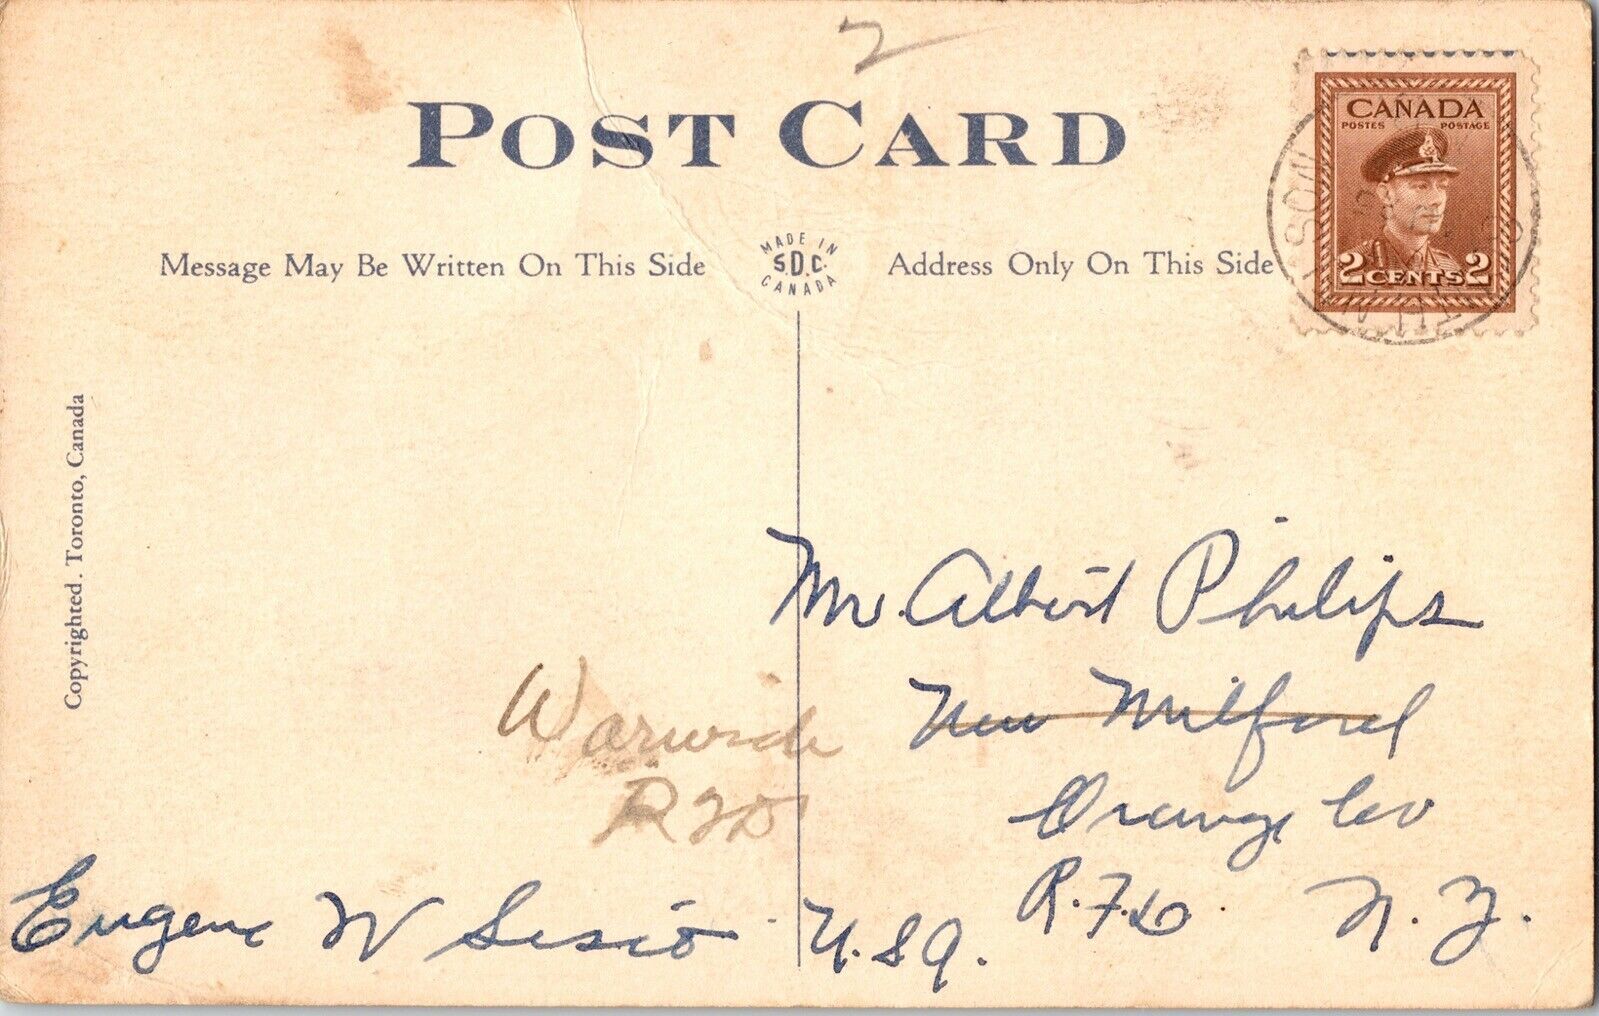 2
POST CARD
CANADA
POSTES POSTAGE
2 CENTS 2
MADE IN
S.D.C.
CANADA
Message May Be Written On This Side
Address Only On This Side
Copyrighted. Toronto, Canada
Mr. Albert Philips
New Milford
Warwick
Orange Co
R.F.D. N.Y.
Eugene W Sisio U.S.A.